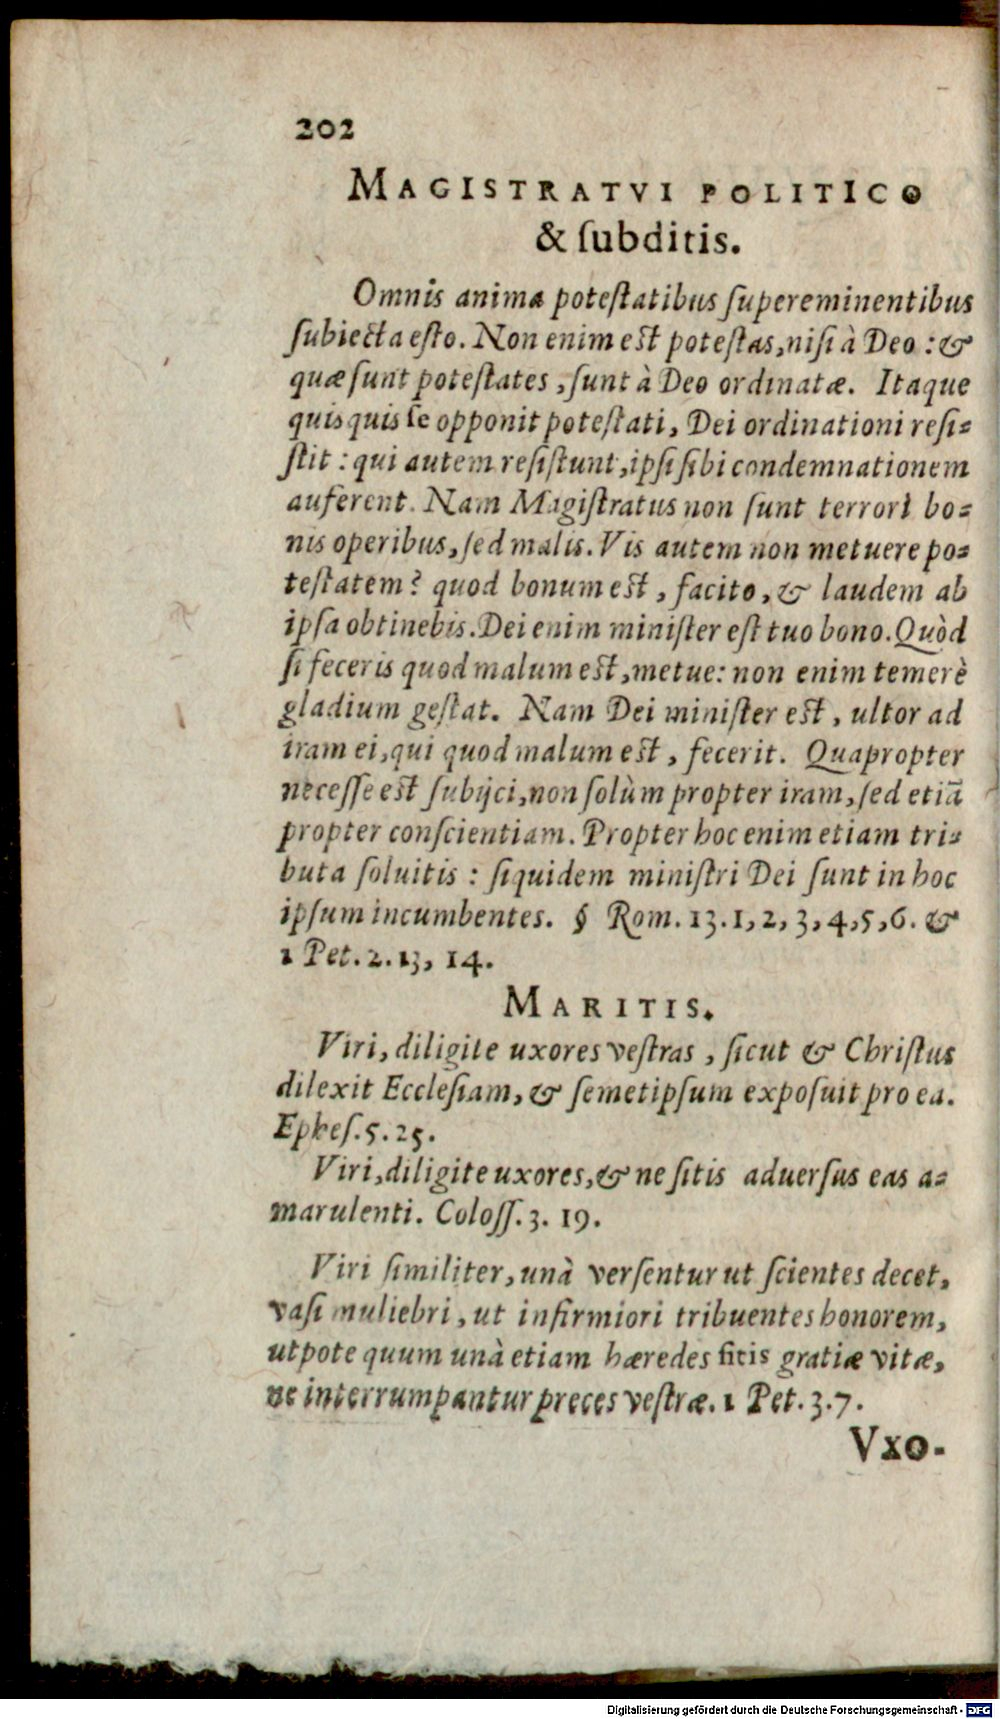 202
MAGISTRATVI POLITICO
& ſubditis.
Omnis anima poteſtatibus ſupereminentibus
ſubiecta eſto. Non enim eſt poteſtas, niſi à Deo: &
quæ ſunt poteſtates, ſunt à Deo ordinatæ. Itaque
quisquis ſe opponit poteſtati, Dei ordinationi reſi-
ſtit: qui autem reſiſtunt, ipſi ſibi condemnationem
auferent. Nam Magiſtratus non ſunt terrori bo-
nis operibus, ſed malis. Vis autem non metuere po-
teſtatem? quod bonum eſt, facito, & laudem ab
ipſa obtinebis. Dei enim miniſter eſt tuo bono. Quòd
ſi feceris quod malum eſt, metue: non enim temerè
gladium geſtat. Nam Dei miniſter eſt, ultor ad
iram ei, qui quod malum eſt, fecerit. Quapropter
neceſſe eſt ſubijci, non ſolùm propter iram, ſed etiã
propter conſcientiam. Propter hoc enim etiam tri-
buta ſoluitis: ſiquidem miniſtri Dei ſunt in hoc
ipſum incumbentes. § Rom. 13. 1, 2, 3, 4, 5, 6. &
1 Pet. 2. 13, 14.
MARITIS.
Viri, diligite uxores veſtras, ſicut & Chriſtus
dilexit Eccleſiam, & ſemetipſum expoſuit pro ea.
Epheſ. 5. 25.
Viri, diligite uxores, & ne ſitis aduerſus eas a-
marulenti. Coloſſ. 3. 19.
Viri ſimiliter, unà verſentur ut ſcientes decet,
vaſi muliebri, ut infirmiori tribuentes honorem,
utpote quum unà etiam hæredes ſitis gratiæ vitæ,
ne interrumpantur preces veſtræ. 1 Pet. 3. 7.
Vxo-
Digitalisierung gefördert durch die Deutsche Forschungsgemeinschaft - DFG